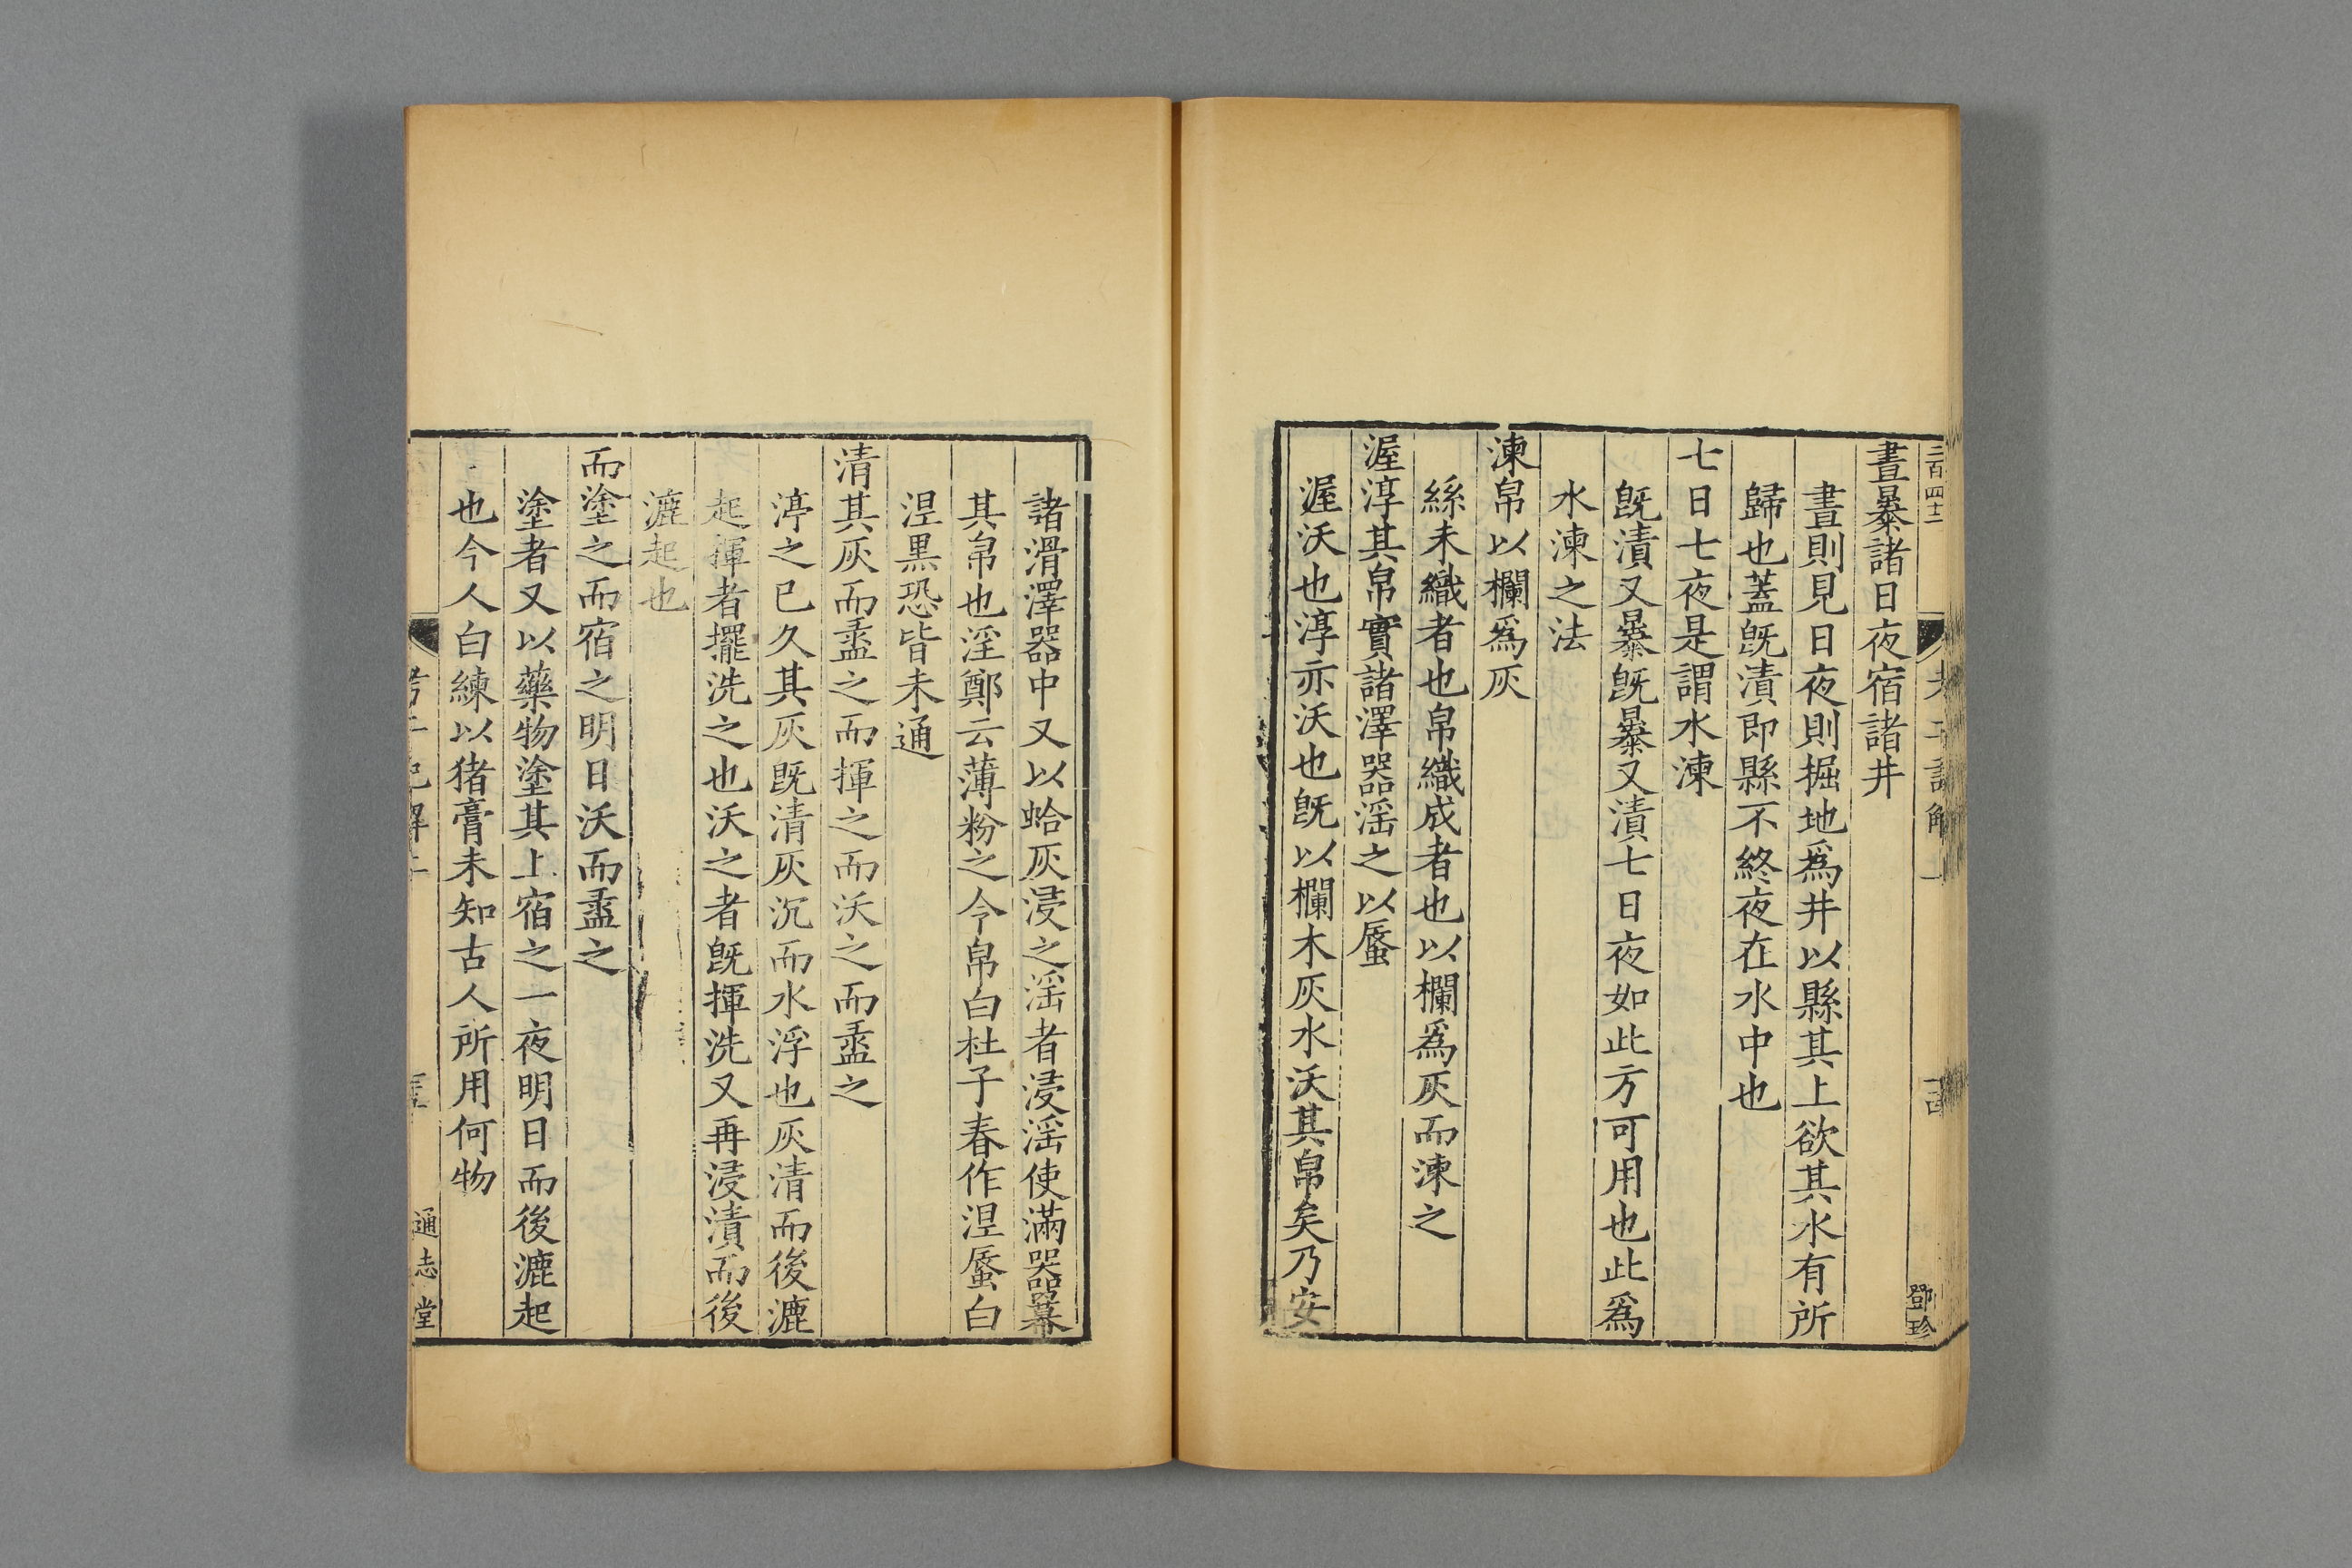 三百四十二
鄧珍
晝暴諸日夜宿諸井
晝則見日夜則掘地爲井以縣其上欲其水有所
歸也蓋旣漬即縣不終夜在水中也
七日七夜是謂水湅
旣漬又暴旣暴又漬七日夜如此方可用也此爲
水湅之法
湅帛以欄爲灰
絲未織者也帛織成者也以欄爲灰而湅之
渥淳其帛實諸澤器淫之以蜃
渥沃也淳亦沃也旣以欄木灰水沃其帛矣乃安
諸滑澤器中又以蛤灰浸之淫者浸淫使滿器冪
其帛也淫鄭云薄粉之今帛白杜子春作涅蜃白
涅黑恐皆未通
清其灰而盝之而揮之而沃之而盝之
渟之已久其灰旣清灰沉而水浮也灰清而後漉
起揮者擺洗之也沃之者旣揮洗又再浸漬而後
漉起也
而塗之而宿之明日沃而盝之
塗者又以藥物塗其上宿之一夜明日而後漉起
也今人白練以猪膏未知古人所用何物
通志堂